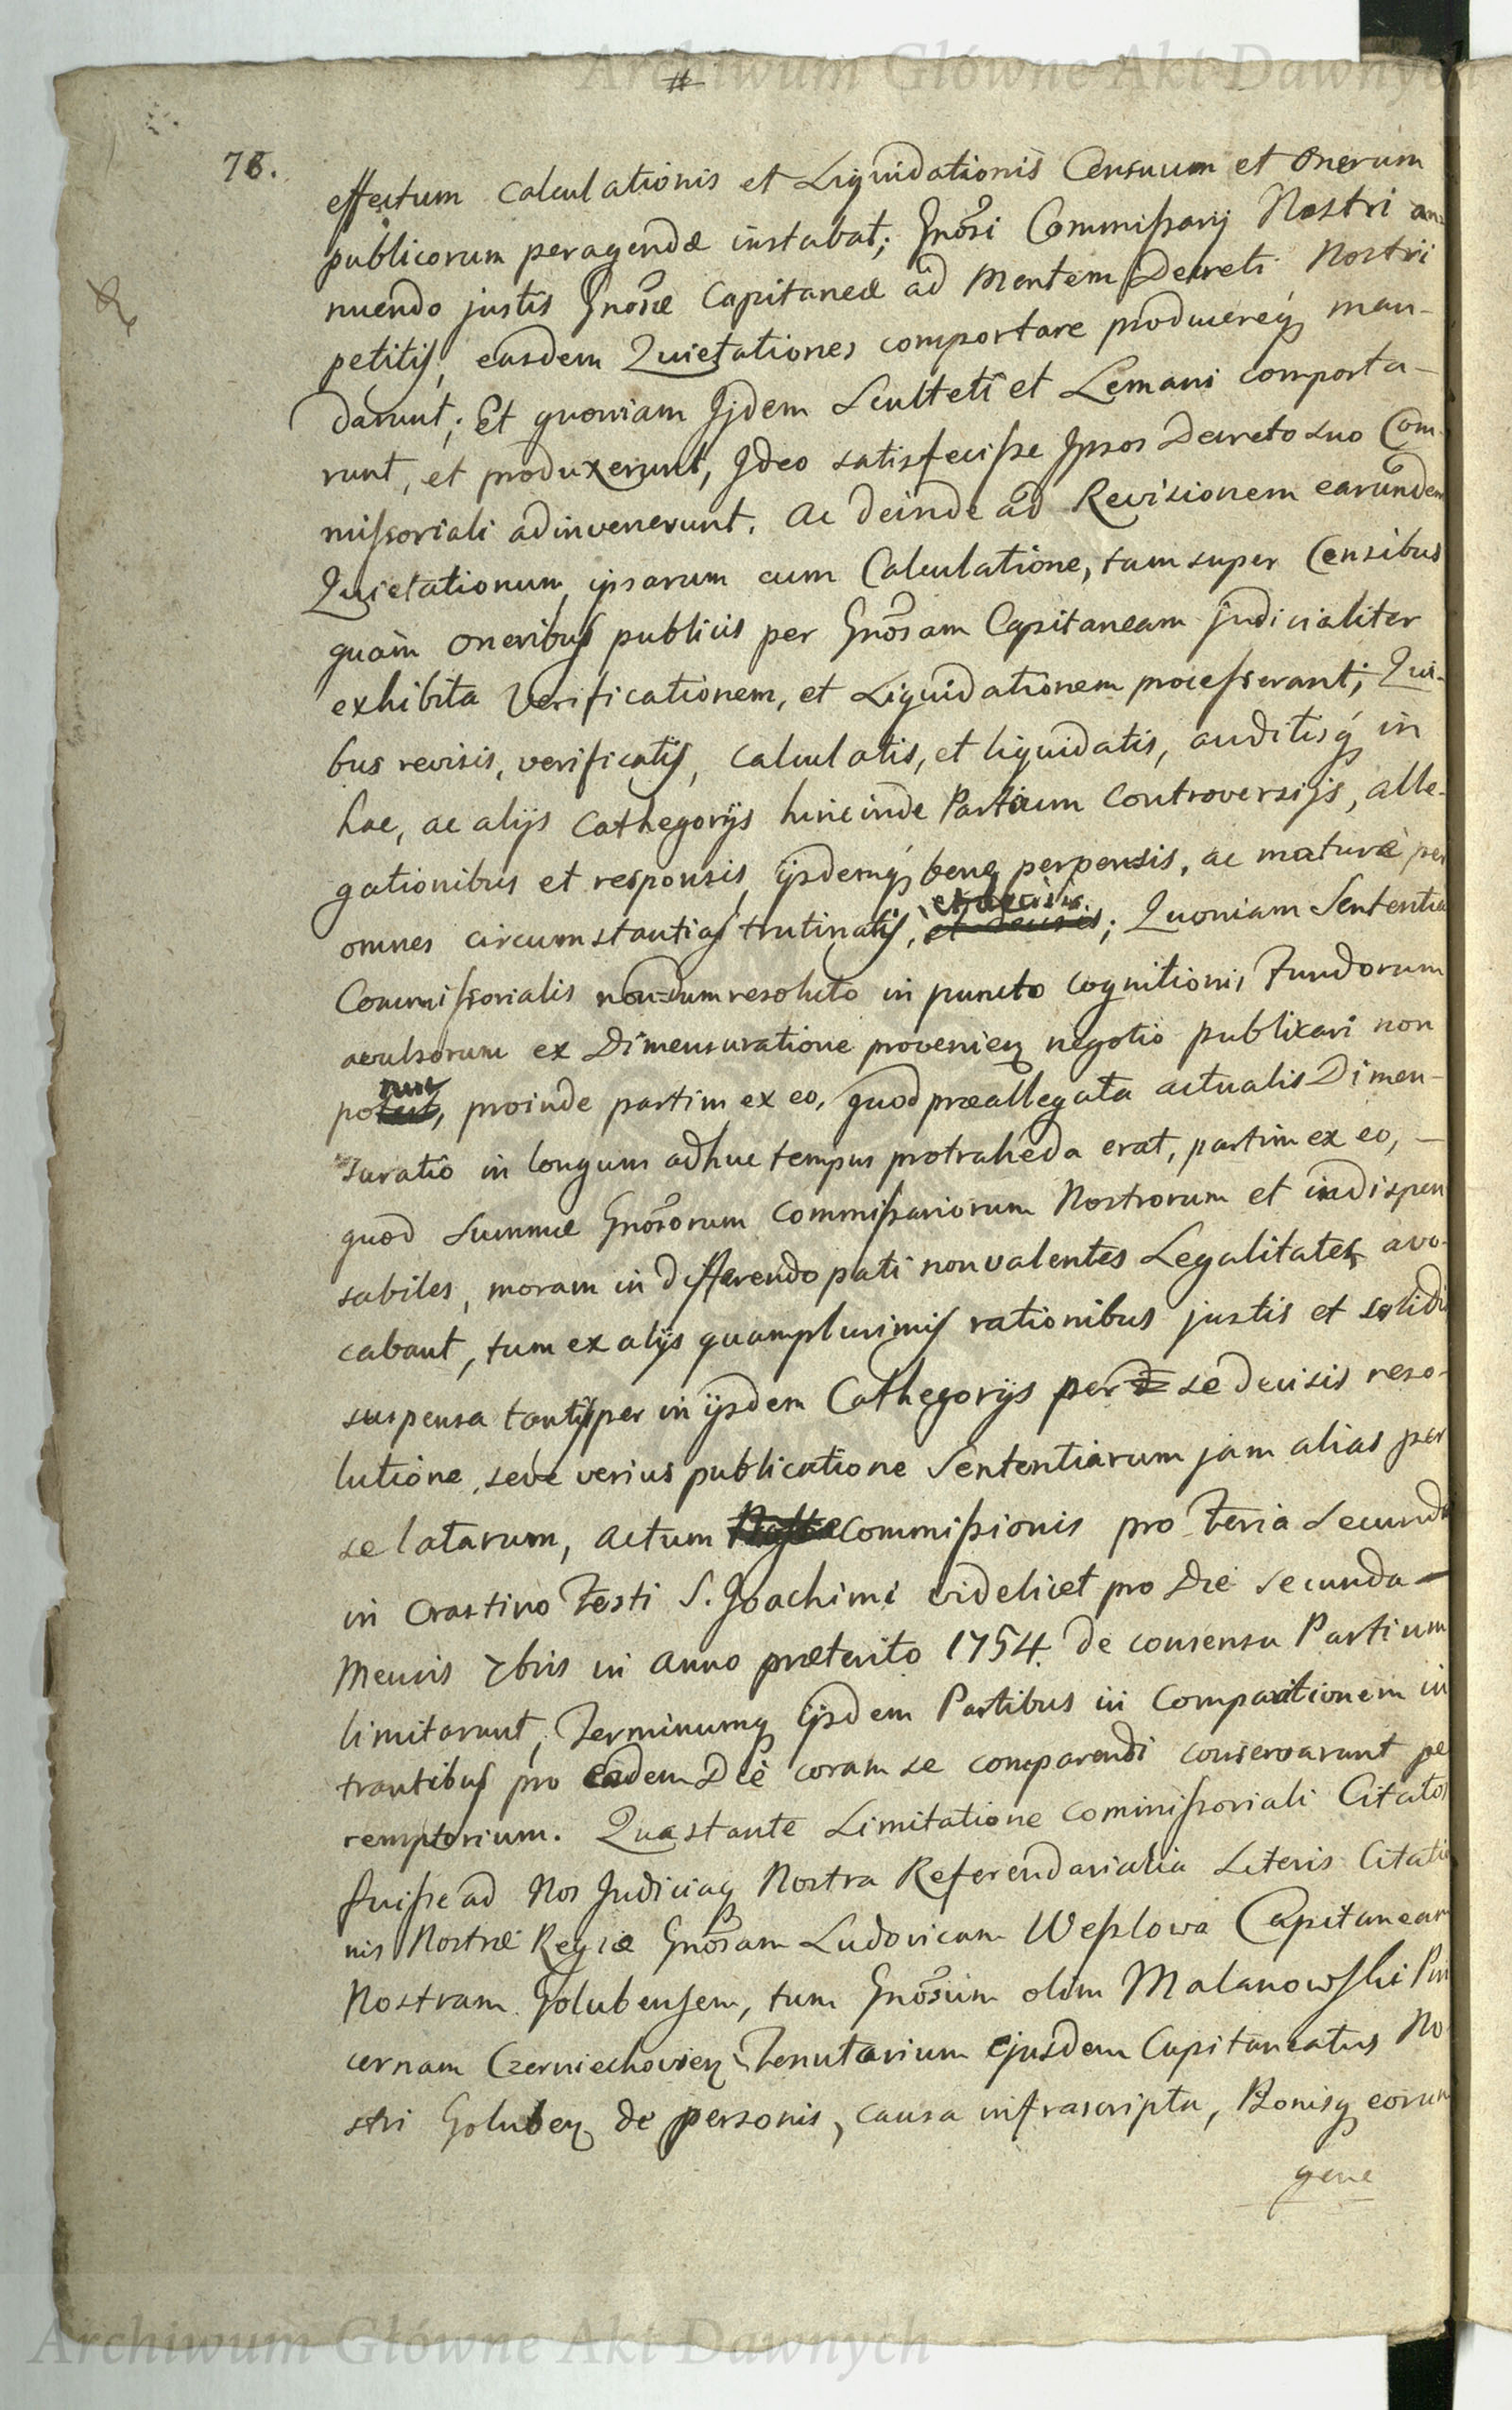 Archiwum Główne Akt Dawnych
#
76.
effectum calculationis et Liquidationis Censuum et Onerum
publicorum peragendæ instabat; Gnosi Commissarij Nostri an=
nuendo justis Gnosæ Capitaneæ ad Mentem Decreti Nostri
petitis, easdem Quietationes comportare producereq man-
darunt; Et quoniam Ijdem Sculteti et Lemani comporta-
runt, et produxerunt, Ideo satisfecisse Ipsos Decreto suo Com-
missoriali adinvenerunt. Ac deinde ad Revisionem earundem
Quietationum, ipsarum cum Calculatione, tam super Censibus
quàm Oneribus publicis per Gnosam Capitaneam judicialiter
exhibita Verificationem, et Liquidationem processerant; Qui-
bus revisis, verificatis, calculatis, et liquidatis, auditisq in
hac, ac alijs Cathegorijs hincinde Partium Controversijs, alle-
gationibus et responsis, ijsdemq bene perpensis, ac maturè per
omnes circumstantias trutinatis, et decisis; Quoniam Sententia
Commissorialis nondum resoluto in puncto cognitionis Fundorum
avulsorum ex Dimensuratione provenien negotio publicari non
po, proinde partim ex eo, quod præallegata actualis Dimen-
suratio in longum adhuc tempus protraheda erat, partim ex eo, —
quod Summæ Gnosorum Commissariorum Nostrorum et indispen
sabiles, moram in differendo pati non valentes Legalitates avo-
cabant, tum ex alijs quamplurimis rationibus justis et solidis
suspensa tantisper in ijsdem Cathegorijs per se decisis reso-
lutione, seu verius publicatione Sententiarum jam alias per
se latarum, actum Commissionis pro Feria Secunda
in Crastino Festi S. Joachimi videlicet pro Die Secunda —
Mensis 7bris in Anno præterito 1754. de consensu Partium
limitarunt, Terminumq ijsdem Partibus in Comparitionem in
trantibus pro eadem Die coram se comparendi conservarunt pe
remptorium. Qua stante Limitatione commissoriali Citatos
fuisse ad Nos Judiciaq Nostra Referendarialia Literis Citatio
nis Nostræ Regiæ Gnosam Ludovicam Wesslowa Capitaneam
Nostram Golubensem, tum Gnosum olim Malanowski Pin
cernam Czerniechovien Tenutarium ejusdem Capitaneatus No
stri Goluben de personis, causa infrascripta, Bonisq eorum
gene
Archiwum Główne Akt Dawnych